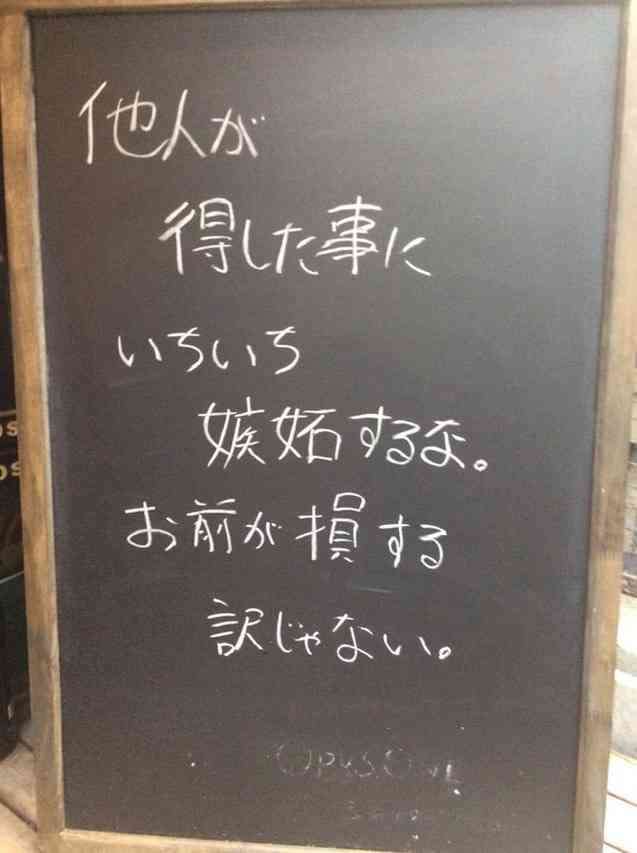 他人が
得した事に
いちいち
嫉妬するな。
お前が損する
訳じゃない。